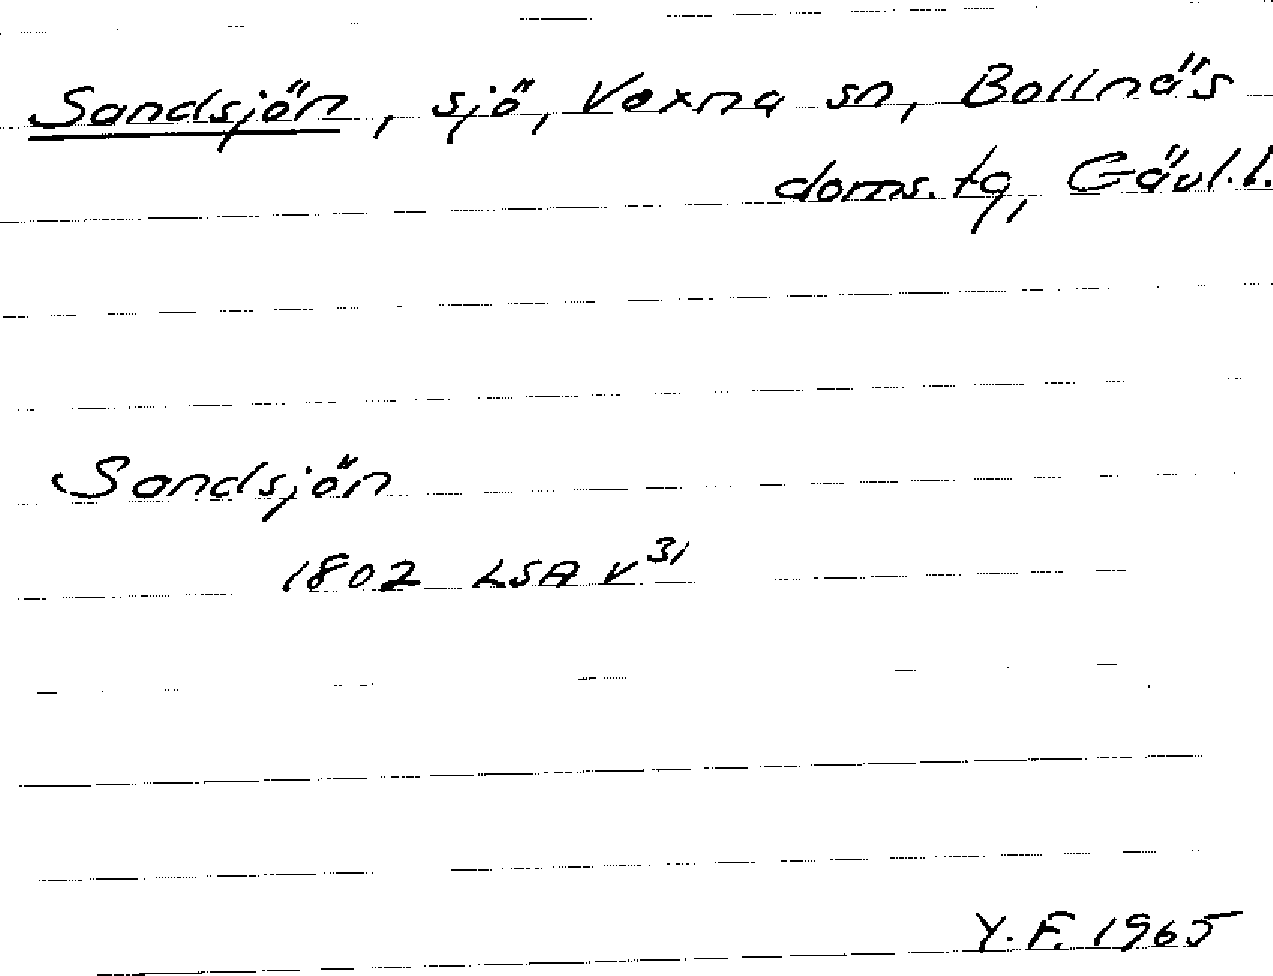 Sandsjön, sjö, Voxna sn, Bollnäs
doms.tg, Gävl.l.
Sandsjön
1802 LSA V³¹
Y.F. 1965